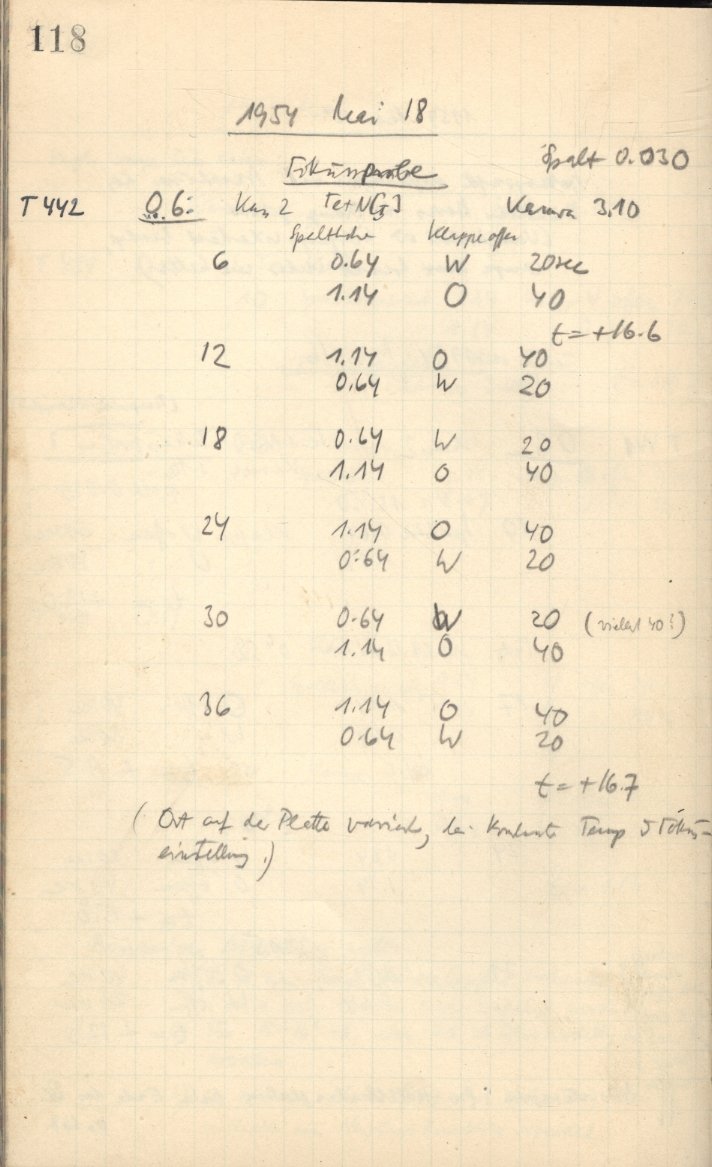 118
1954 Mai 18
Spalt 0.030
Fokusprobe
T 442 Q 6: Kas 2 Fe+N Kamera 3.10
Spalthöhe Klappe offen
6 0.64 W 20 sec
1.14 O 40
t = +16.6
12 1.14 O 40
0.64 W 20
18 0.64 W 20
1.14 O 40
24 1.14 O 40
0.64 W 20
30 0.64 W 20 (vielert 40?)
1.14 O 40
36 1.14 O 40
0.64 W 20
t = +16.7
(Ort auf der Platte variiert, bei Konstante Temp & Fokus-
einstellung.)